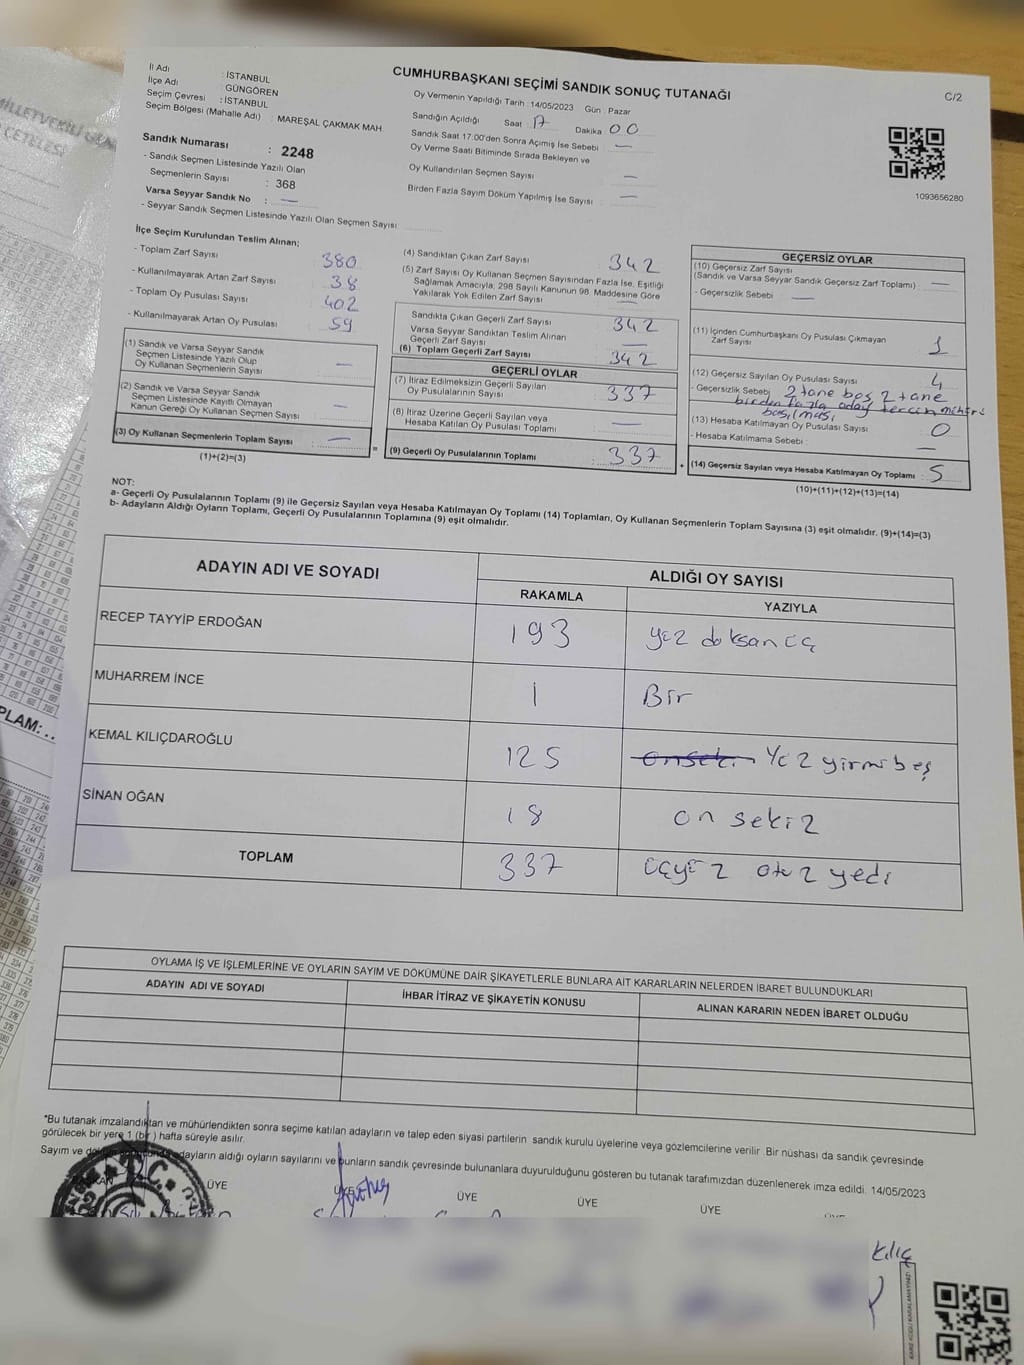 CUMHURBAŞKANI SEÇİMİ SANDIK SONUÇ TUTANAĞI
C/2
İl Adı : İSTANBUL
İlçe Adı : GÜNGÖREN
Seçim Çevresi : İSTANBUL
Seçim Bölgesi (Mahalle Adı) : MAREŞAL ÇAKMAK MAH
Sandık Numarası : 2248
- Sandık Seçmen Listesinde Yazılı Olan
Seçmenlerin Sayısı : 368
Varsa Seyyar Sandık No : —
- Seyyar Sandık Seçmen Listesinde Yazılı Olan Seçmen Sayısı
Oy Vermenin Yapıldığı Tarih : 14/05/2023 Gün : Pazar
Sandığın Açıldığı Saat 17 Dakika 00
Sandık Saat 17:00'den Sonra Açımış İse Sebebi —
Oy Verme Saati Bitiminde Sırada Bekleyen ve
Oy Kullandırılan Seçmen Sayısı —
Birden Fazla Sayım Döküm Yapılmış İse Sayısı —
1093656280
İlçe Seçim Kurulundan Teslim Alınan;
- Toplam Zarf Sayısı 380
- Kullanılmayarak Artan Zarf Sayısı 38
- Toplam Oy Pusulası Sayısı 402
- Kullanılmayarak Artan Oy Pusulası 59
(1) Sandık ve Varsa Seyyar Sandık
Seçmen Listesinde Yazılı Olup
Oy Kullanan Seçmenlerin Sayısı —
(2) Sandık ve Varsa Seyyar Sandık
Seçmen Listesinde Kayıtlı Olmayan
Kanun Gereği Oy Kullanan Seçmen Sayısı —
(3) Oy Kullanan Seçmenlerin Toplam Sayısı —
(1)+(2)=(3)
(4) Sandıktan Çıkan Zarf Sayısı 342
(5) Zarf Sayısı Oy Kullanan Seçmen Sayısından Fazla İse, Eşitliği
Sağlamak Amacıyla, 298 Sayılı Kanunun 98. Maddesine Göre
Yakılarak Yok Edilen Zarf Sayısı —
Sandıkta Çıkan Geçerli Zarf Sayısı 342
Varsa Seyyar Sandıktan Teslim Alınan
Geçerli Zarf Sayısı —
(6) Toplam Geçerli Zarf Sayısı 342
GEÇERLİ OYLAR
(7) İtiraz Edilmeksizin Geçerli Sayılan
Oy Pusulalarının Sayısı 337
(8) İtiraz Üzerine Geçerli Sayılan veya
Hesaba Katılan Oy Pusulası Toplamı —
= (9) Geçerli Oy Pusulalarının Toplamı 337
GEÇERSİZ OYLAR
(10) Geçersiz Zarf Sayısı
(Sandık ve Varsa Seyyar Sandık Geçersiz Zarf Toplamı) —
- Geçersizlik Sebebi —
(11) İçinden Cumhurbaşkanı Oy Pusulası Çıkmayan
Zarf Sayısı 1
(12) Geçersiz Sayılan Oy Pusulası Sayısı 4
- Geçersizlik Sebebi 2 tane boş 2 tane
birden fazla aday tercih mührü
basılmış
(13) Hesaba Katılmayan Oy Pusulası Sayısı 0
- Hesaba Katılmama Sebebi : —
+ (14) Geçersiz Sayılan veya Hesaba Katılmayan Oy Toplamı 5
(10)+(11)+(12)+(13)=(14)
NOT:
a- Geçerli Oy Pusulalarının Toplamı (9) ile Geçersiz Sayılan veya Hesaba Katılmayan Oy Toplamı (14) Toplamları, Oy Kullanan Seçmenlerin Toplam Sayısına (3) eşit olmalıdır. (9)+(14)=(3)
b- Adayların Aldığı Oyların Toplamı, Geçerli Oy Pusulalarının Toplamına (9) eşit olmalıdır.
ADAYIN ADI VE SOYADI ALDIĞI OY SAYISI
RAKAMLA YAZIYLA
RECEP TAYYİP ERDOĞAN 193 yüz doksan üç
MUHARREM İNCE 1 Bir
KEMAL KILIÇDAROĞLU 125 onseki yüz yirmi beş
SİNAN OĞAN 18 on sekiz
TOPLAM 337 üçyüz otuz yedi
OYLAMA İŞ VE İŞLEMLERİNE VE OYLARIN SAYIM VE DÖKÜMÜNE DAİR ŞİKAYETLERLE BUNLARA AİT KARARLARIN NELERDEN İBARET BULUNDUKLARI
ADAYIN ADI VE SOYADI İHBAR İTİRAZ VE ŞİKAYETİN KONUSU ALINAN KARARIN NEDEN İBARET OLDUĞU
*Bu tutanak imzalandıktan ve mühürlendikten sonra seçime katılan adayların ve talep eden siyasi partilerin sandık kurulu üyelerine veya gözlemcilerine verilir. Bir nüshası da sandık çevresinde
görülecek bir yere 1 (bir) hafta süreyle asılır.
Sayım ve döküm sonucunda adayların aldığı oyların sayılarını ve bunların sandık çevresinde bulunanlara duyurulduğunu gösteren bu tutanak tarafımızdan düzenlenerek imza edildi. 14/05/2023
BAŞKAN ÜYE ÜYE ÜYE ÜYE ÜYE ÜYE
T.C.
Kılıç
MİLLETVEKİLİ
CETELESİ
PLAM: ..